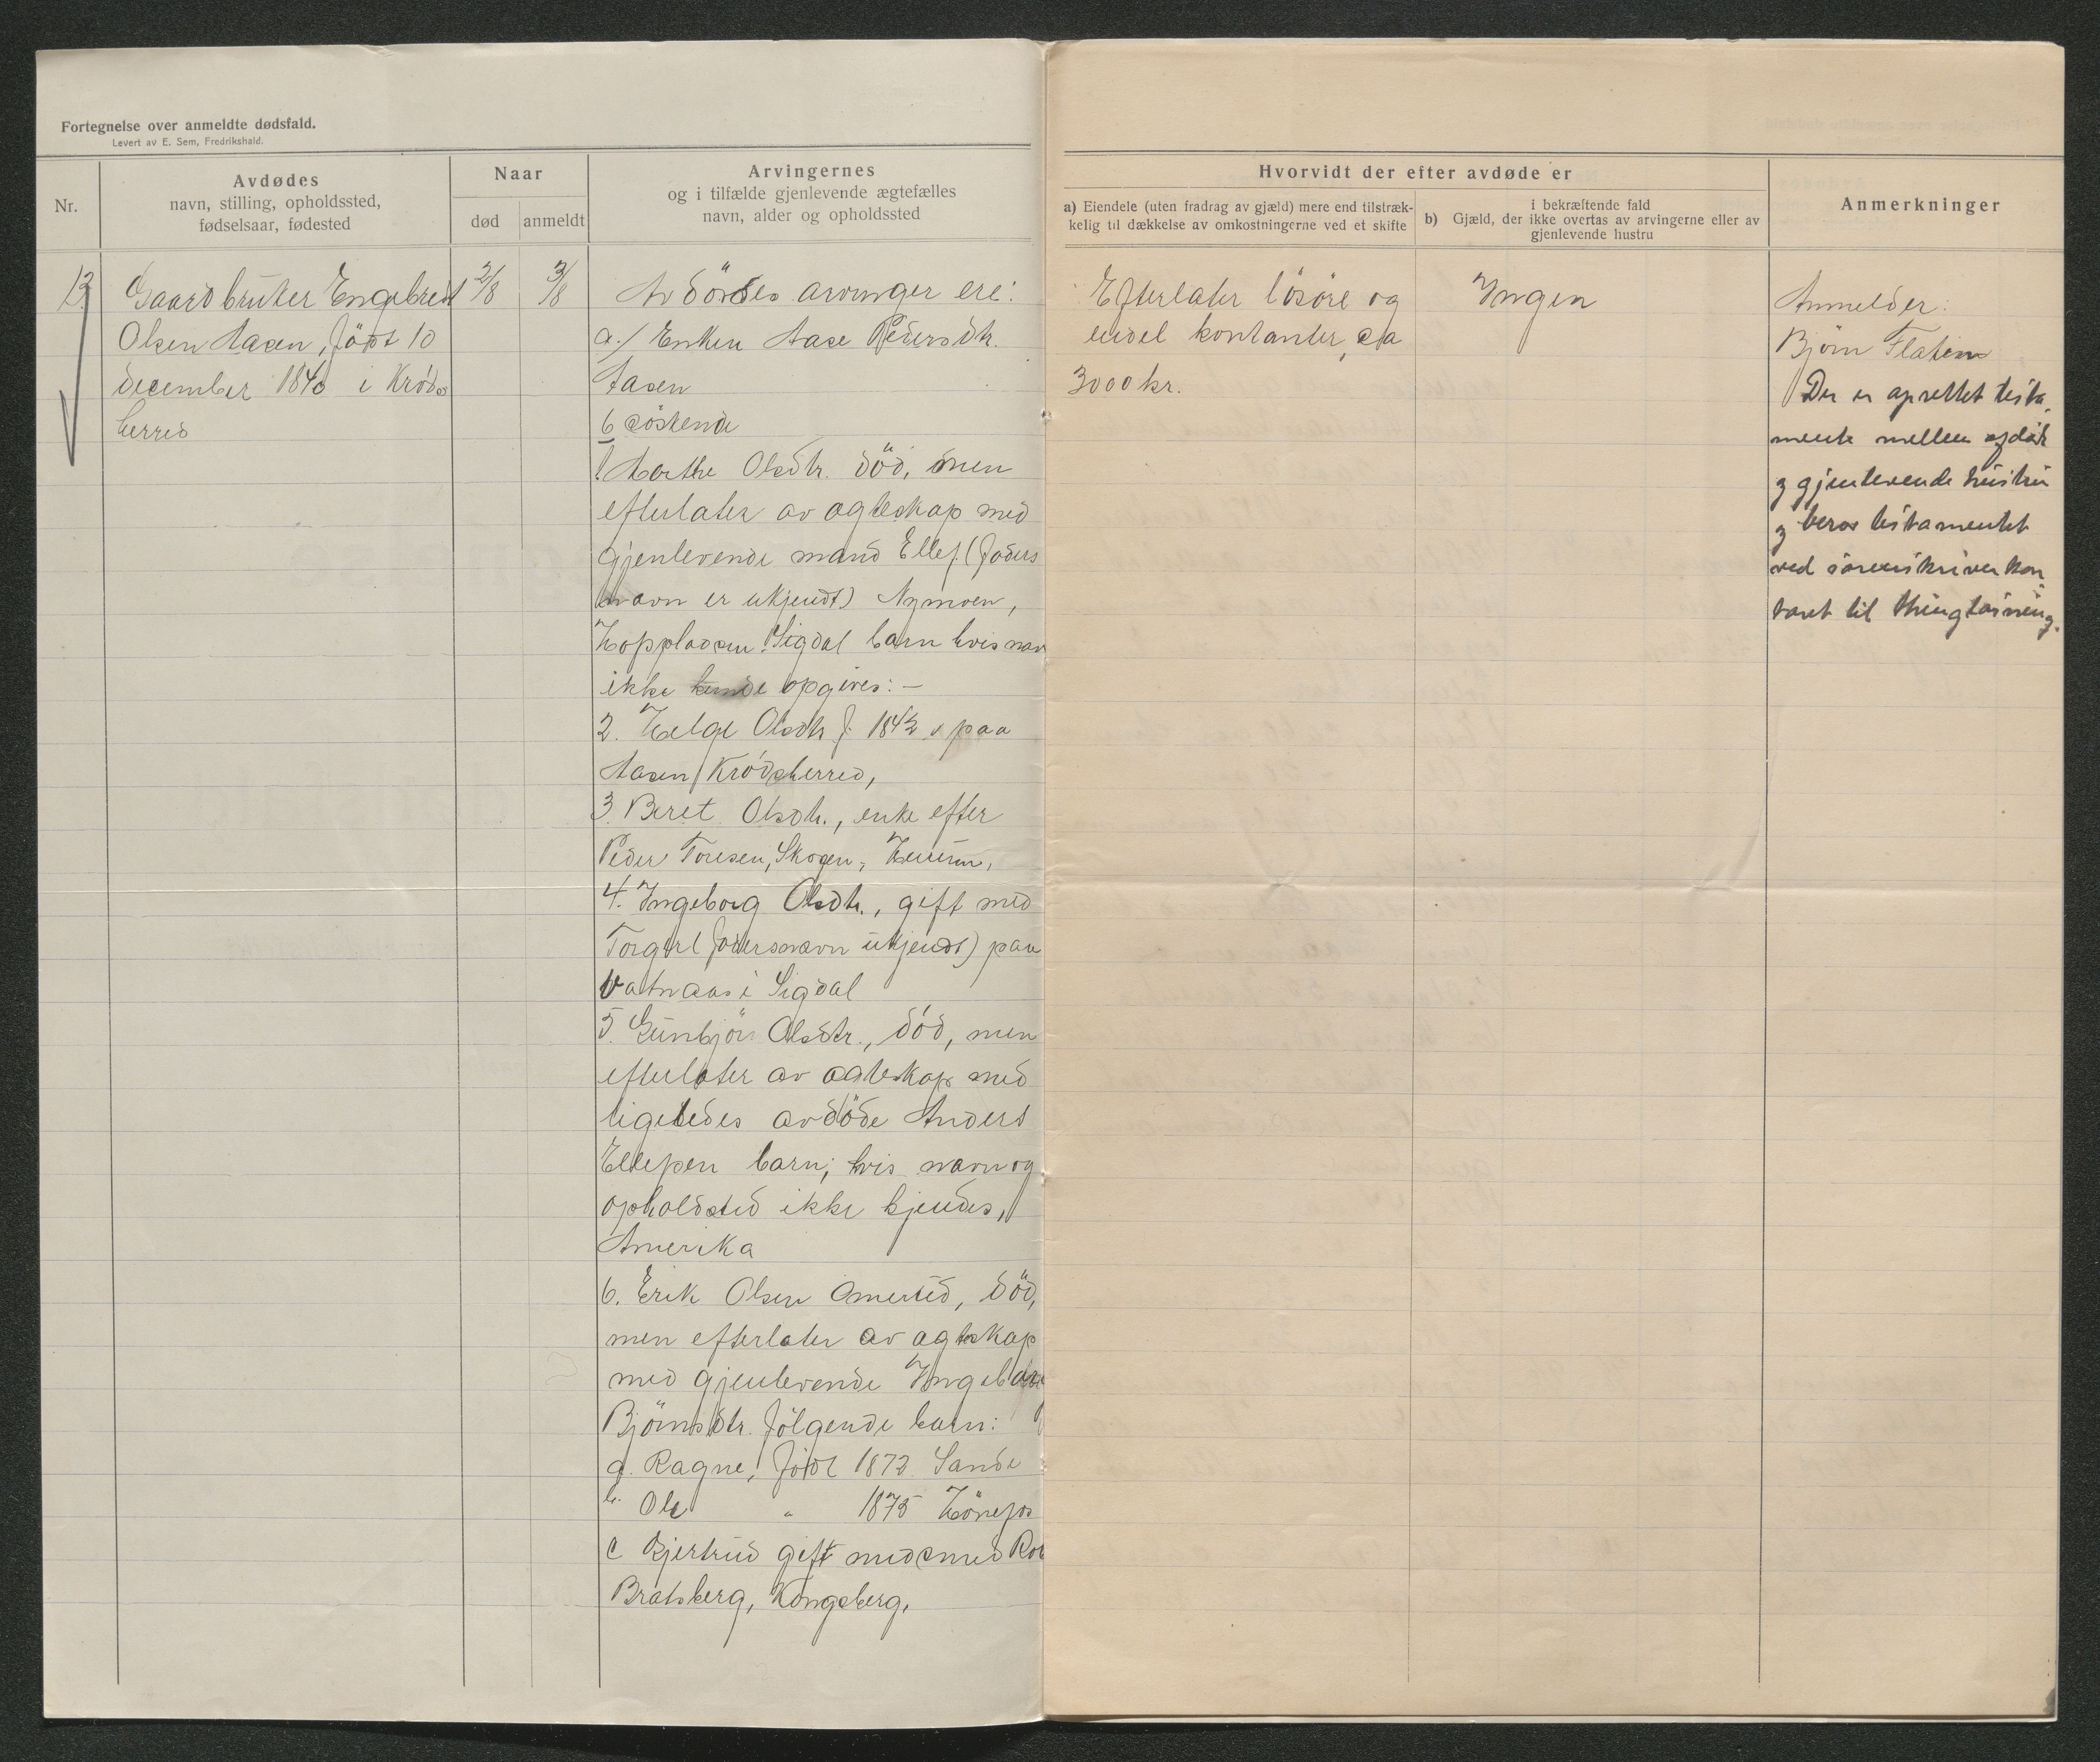 Fortegnelse over anmeldte dødsfald.
Levert av E. Sem, Fredrikshald.
Nr.
Avdødes
navn, stilling, opholdssted,
fødselsaar, fødested
Naar
død
anmeldt
Arvingernes
og i tilfælde gjenlevende ægtefælles
navn, alder og opholdssted
Hvorvidt der efter avdøde er
a) Eiendele (uten fradrag av gjæld) mere end tilstræk-
kelig til dækkelse av omkostningerne ved et skifte
i bekræftende fald
b) Gjæld, der ikke overtas av arvingerne eller av
gjenlevende hustru
Anmerkninger
13
Gaardbruker Engebret
Olsen Aasen, födt 10
december 1840 i Kröds
herred
2/8
3/8
Avdödes arvinger ere:
a./ Enken Aase Pedersdtr.
Aasen
6 söskende
1 Marthe Olsdtr. död, men
efterlater av ægteskap med
gjenlevende mand Ellef (faders
navn er ukjendt) Nymoen,
Sigdal barn hvis nav
ikke kunde opgives: –
2. Helge Olsdtr f. 1842 paa
Aasen Krödsherred,
3. Beret Olsdtr., enke efter
Peder Toresen, Skogen,
4. Ingeborg Olsdtr., gift med
Torger (fadersnavn ukjendt) paa
Vatnaas i Sigdal
5. Gunbjör Olsdtr., död, men
efterlater av ægteskap med
ligeledes avdöde Anders
Ellefsen barn, hvis navn og
opholdsted ikke kjendes,
Amerika
6. Erik Olsen död,
men efterlater av ægteskap
med gjenlevende Ingeborg
Björnsdtr. fölgende barn:
a. Ragne, födt 1872 Sande
b. Ole " 1875 Hönefos
c Gjertrud gift med smed
Bratsberg, Kongsberg.
Efterlater lösöre og
endel kontanter, ca
3000 kr.
Ingen
Anmelder:
Björn Flaten
Der er oprettet testa
mente mellem afdöde
og gjenlevende hustru
og beror testamentet
ved sorenskriverkon
toret til thinglæsning.